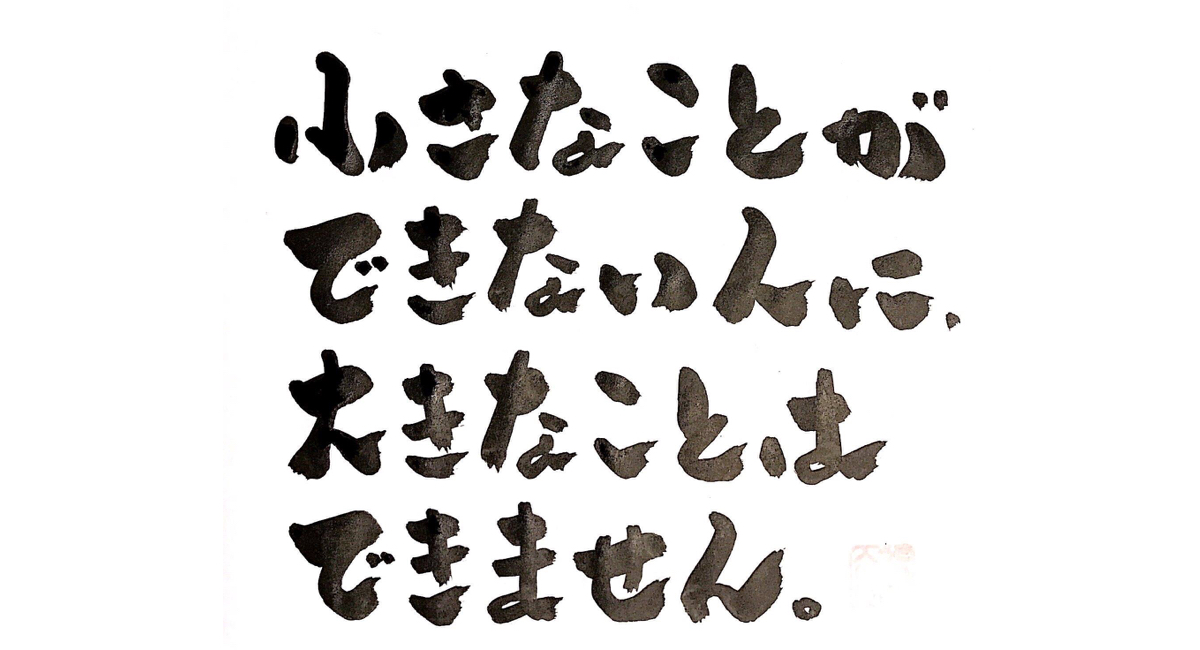 小さなことが
できない人に、
大きなことは
できません。